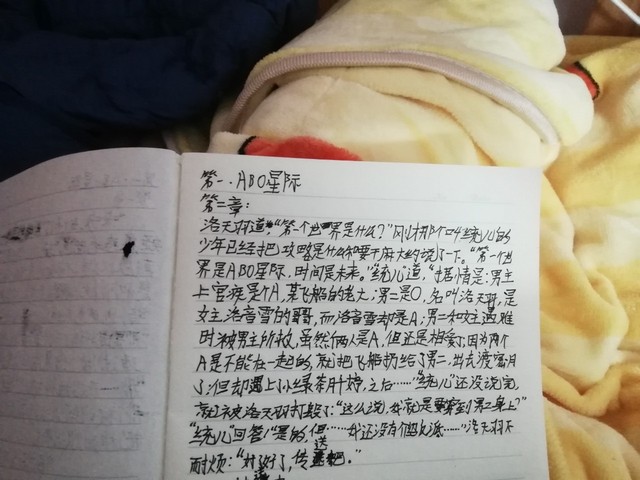 第一.ABO星际
第二章:
洛天羽道:“第一个世界是什么?”刚才那个叫统儿的
少年已经把攻略是什么和要干麻大约说了一下。“第一个世
界是ABO星际,时间是未来。”统儿道,“剧情是:男主
上官 是个A,某飞船的老大;男二是O,名叫洛天羽,是
女主洛音雪的哥,而洛音雪却是A;男二和女主遇难
时被男主所救,虽然俩人是A,但还是相爱了,因为两个
A是不能在一起的,就把飞船扔给了男二,出去渡蜜月
了,但却遇上小绿茶叶婷,之后……”统儿”还没说完,
就被洛天羽打毁了:“这么说,我就是要穿到男二身上?”
“统儿”回答:“是的,但……我还没有个 派……”洛天羽不
耐烦:“好了好了,传送吧。”